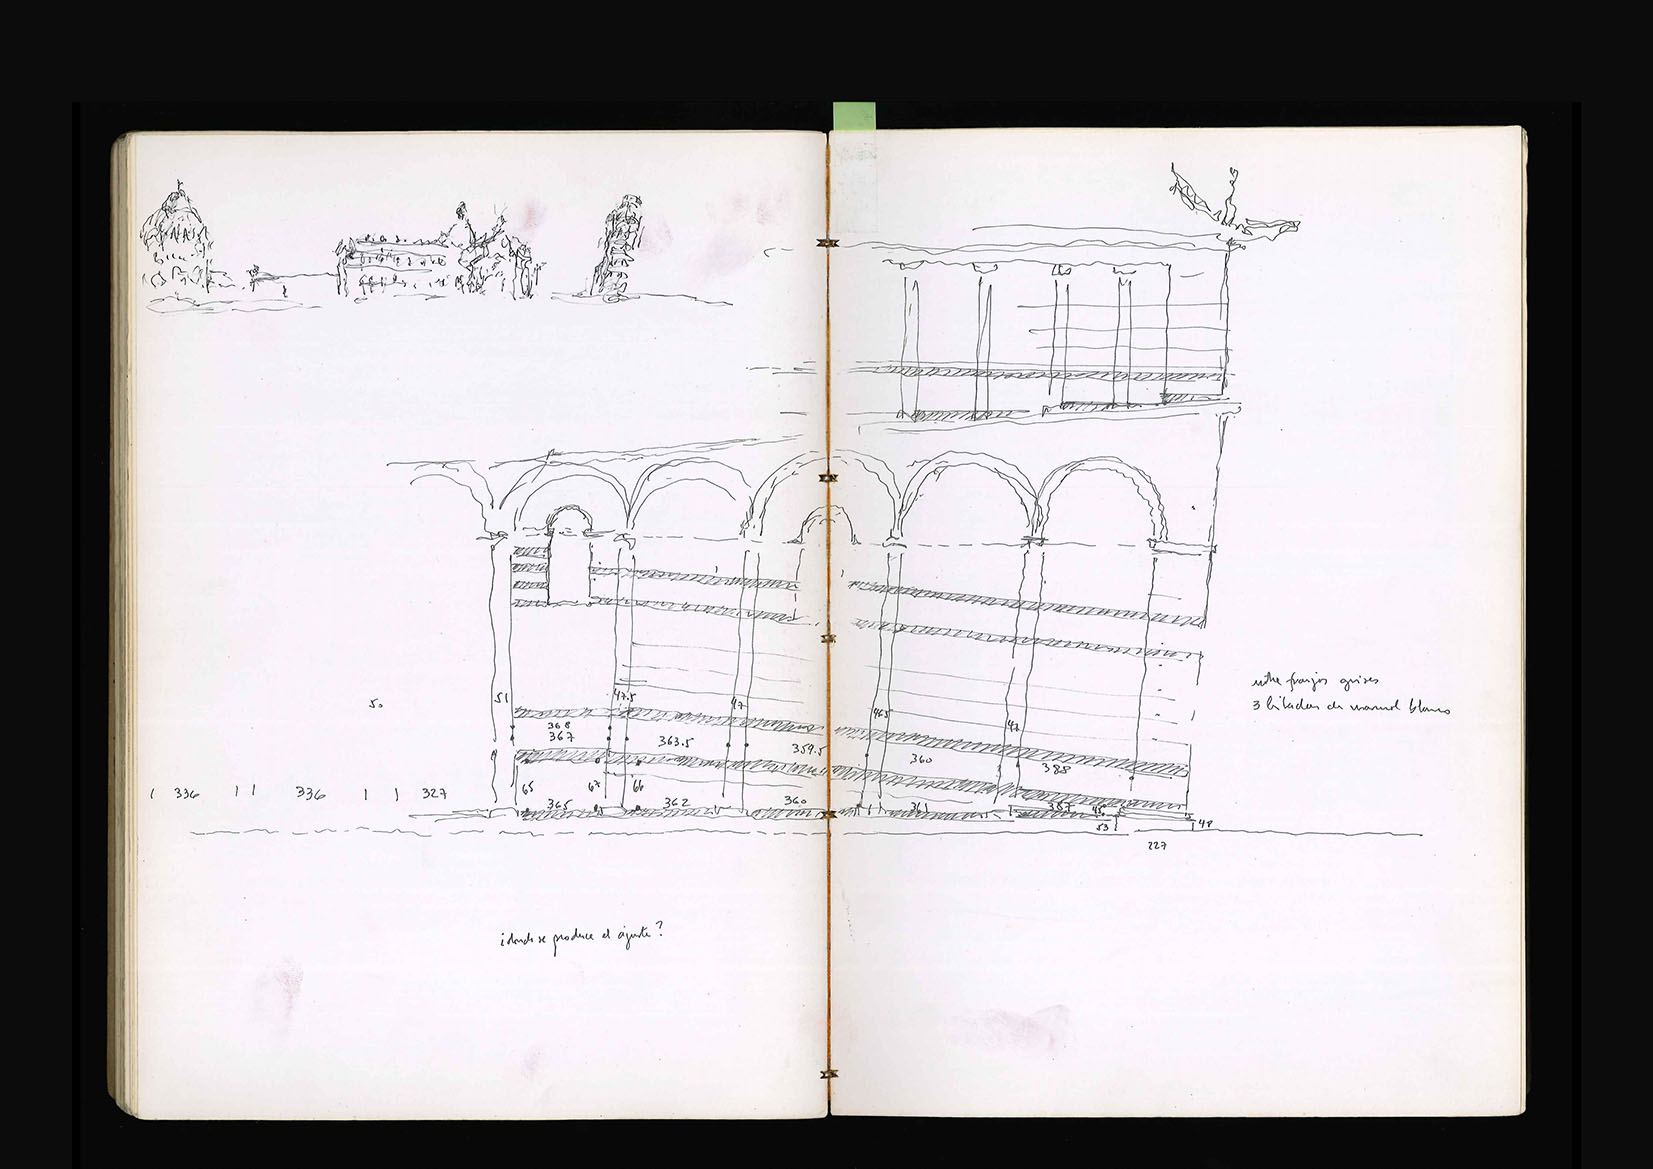 50
51
47.5
47
46.5
47
368
367
363.5
359.5
360
388
65
67
66
336
336
327
365
362
360
361
387
53
48
227
entre franjas grises
3 hiladas de marmol blanco
¿donde se produce el ajuste?